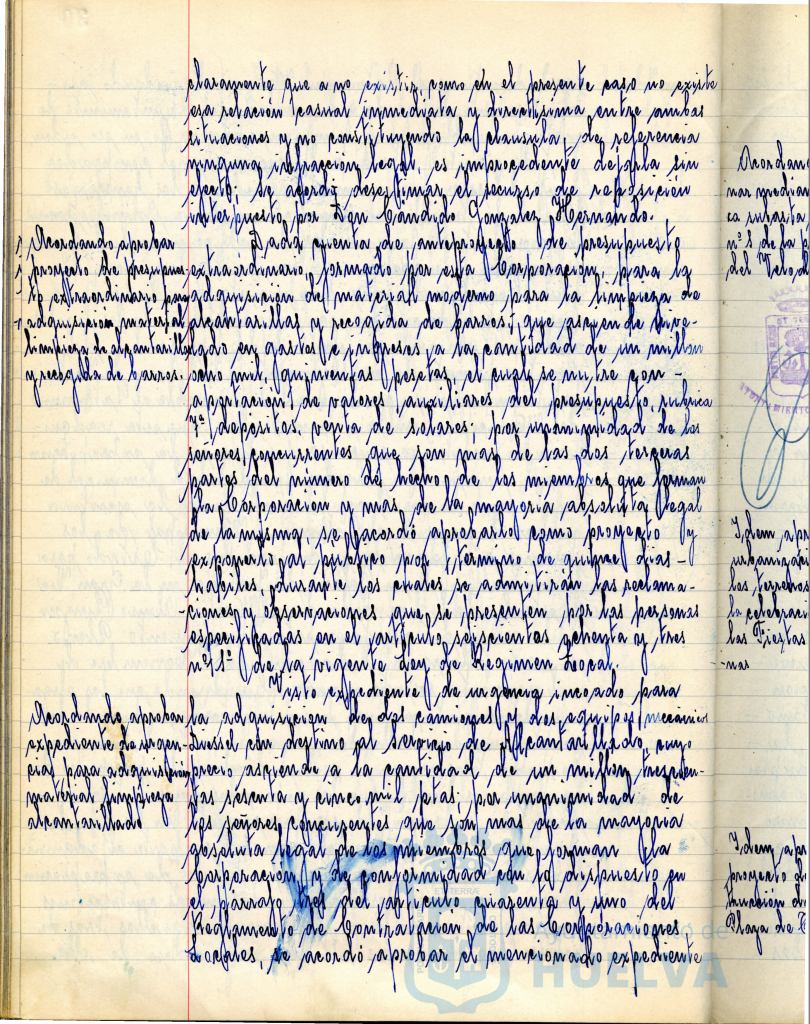 claramente que a no existir, como en el presente caso no existe
esa relación casual inmediata y directísima entre ambas
situaciones y no constituyendo la clausula de referencia
ninguna infracción legal, es improcedente dejarla sin
efecto; se acordó desestimar el recurso de reposición
interpuesto por Don Cándido Gonzalez Hernando.
Acordando aprobar
proyecto de presupues-
to extraordinario para
adquisición material
limpieza de alcantarillas
y recogida de barros.
Dada cuenta de anteproyecto de presupuesto
extraordinario, formado por esta Corporación, para la
adquisición de material moderno para la limpieza de
alcantarillas y recogida de barros; que asciende nive-
lado en gastos e ingresos a la cantidad de un millon
ocho mil quinientas pesetas, el cual se nutre con
aportación de valores auxiliares del presupuesto, rubrica
7ª depositos, venta de solares; por unanimidad de los
señores concurrentes que son mas de las dos terceras
partes del número de hecho de los miembros que forman
la Corporación y mas de la mayoria absoluta legal
de la misma, se acordó aprobarlo como proyecto y
exponerlo al publico por termino de quince dias
habiles, durante los cuales se admitirán las reclama-
ciones y observaciones que se presenten por las personas
especificadas en el articulo seiscientos ochenta y tres
nº 1º de la vigente Ley de Regimen Local.
Acordando aprobar
expediente de urgen-
cia para adquisición
material limpieza
alcantarillado
Visto expediente de urgencia incoado para
la adquisicion de dos camiones y dos equipos mecánicos
con destino al Servicio de Alcantarillado, cuyo
precio asciende a la cantidad de un millon trescien-
tas sesenta y cinco mil ptas; por unanimidad de
los señores concurrentes que son mas de la mayoria
absoluta legal de los miembros que forman la
Corporación y de conformidad con lo dispuesto en
el párrafo tres del articulo cuarenta y uno del
Reglamento de Contratación de las Corporaciones
Locales, se acordó aprobar el mencionado expediente
Acordan
nar median
ca subasta
nº 8 de la
del Velod
Idem, apr
urbanizaci
los terrenos
la celebraci
las Fiestas
nas
Idem, apr
proyecto d
trucción d
Plaza de
Ayuntamiento de
HUELVA